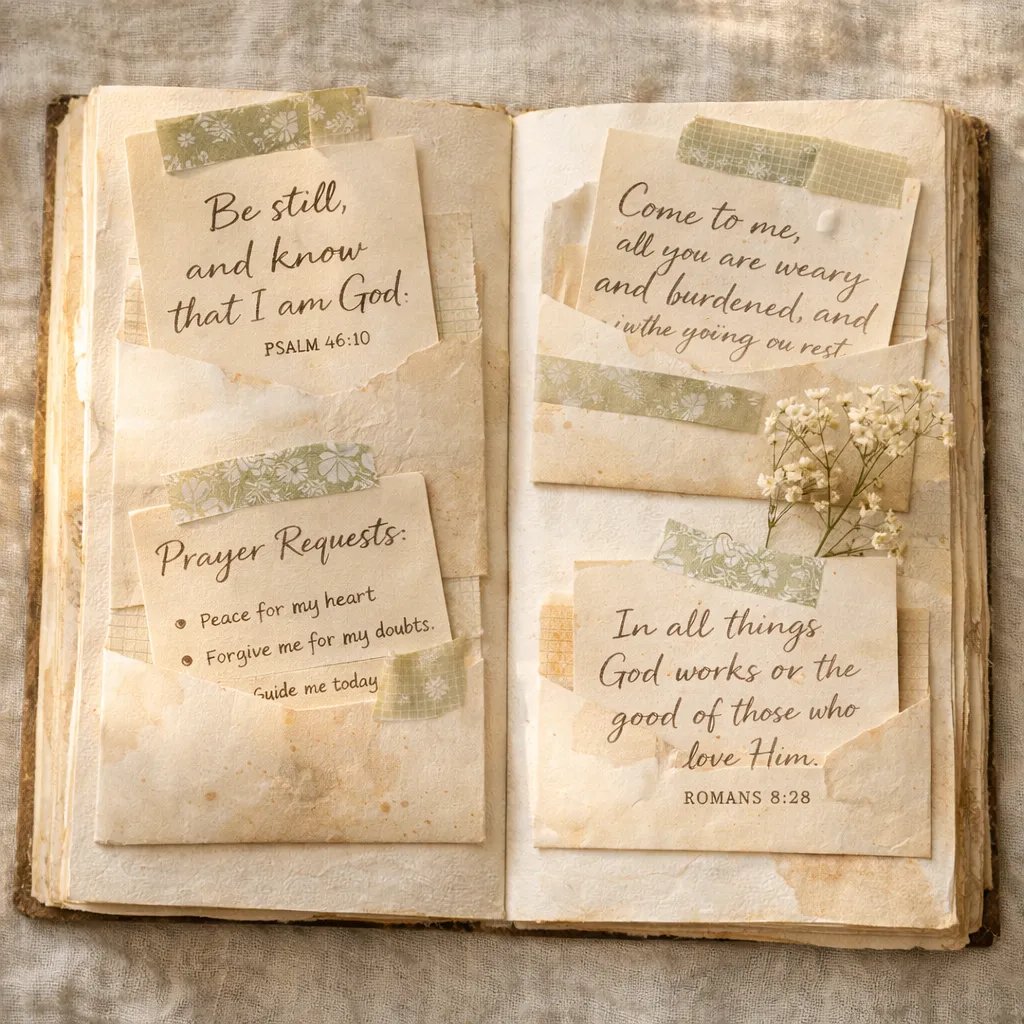 Be still,
and know
that I am God:
PSALM 46:10
Prayer Requests:
• Peace for my heart
• Forgive me for my doubts.
Guide me today
Come to me,
all you are weary
and burdened, and
yoing ou rest
In all things
God works or the
good of those who
love Him.
ROMANS 8:28